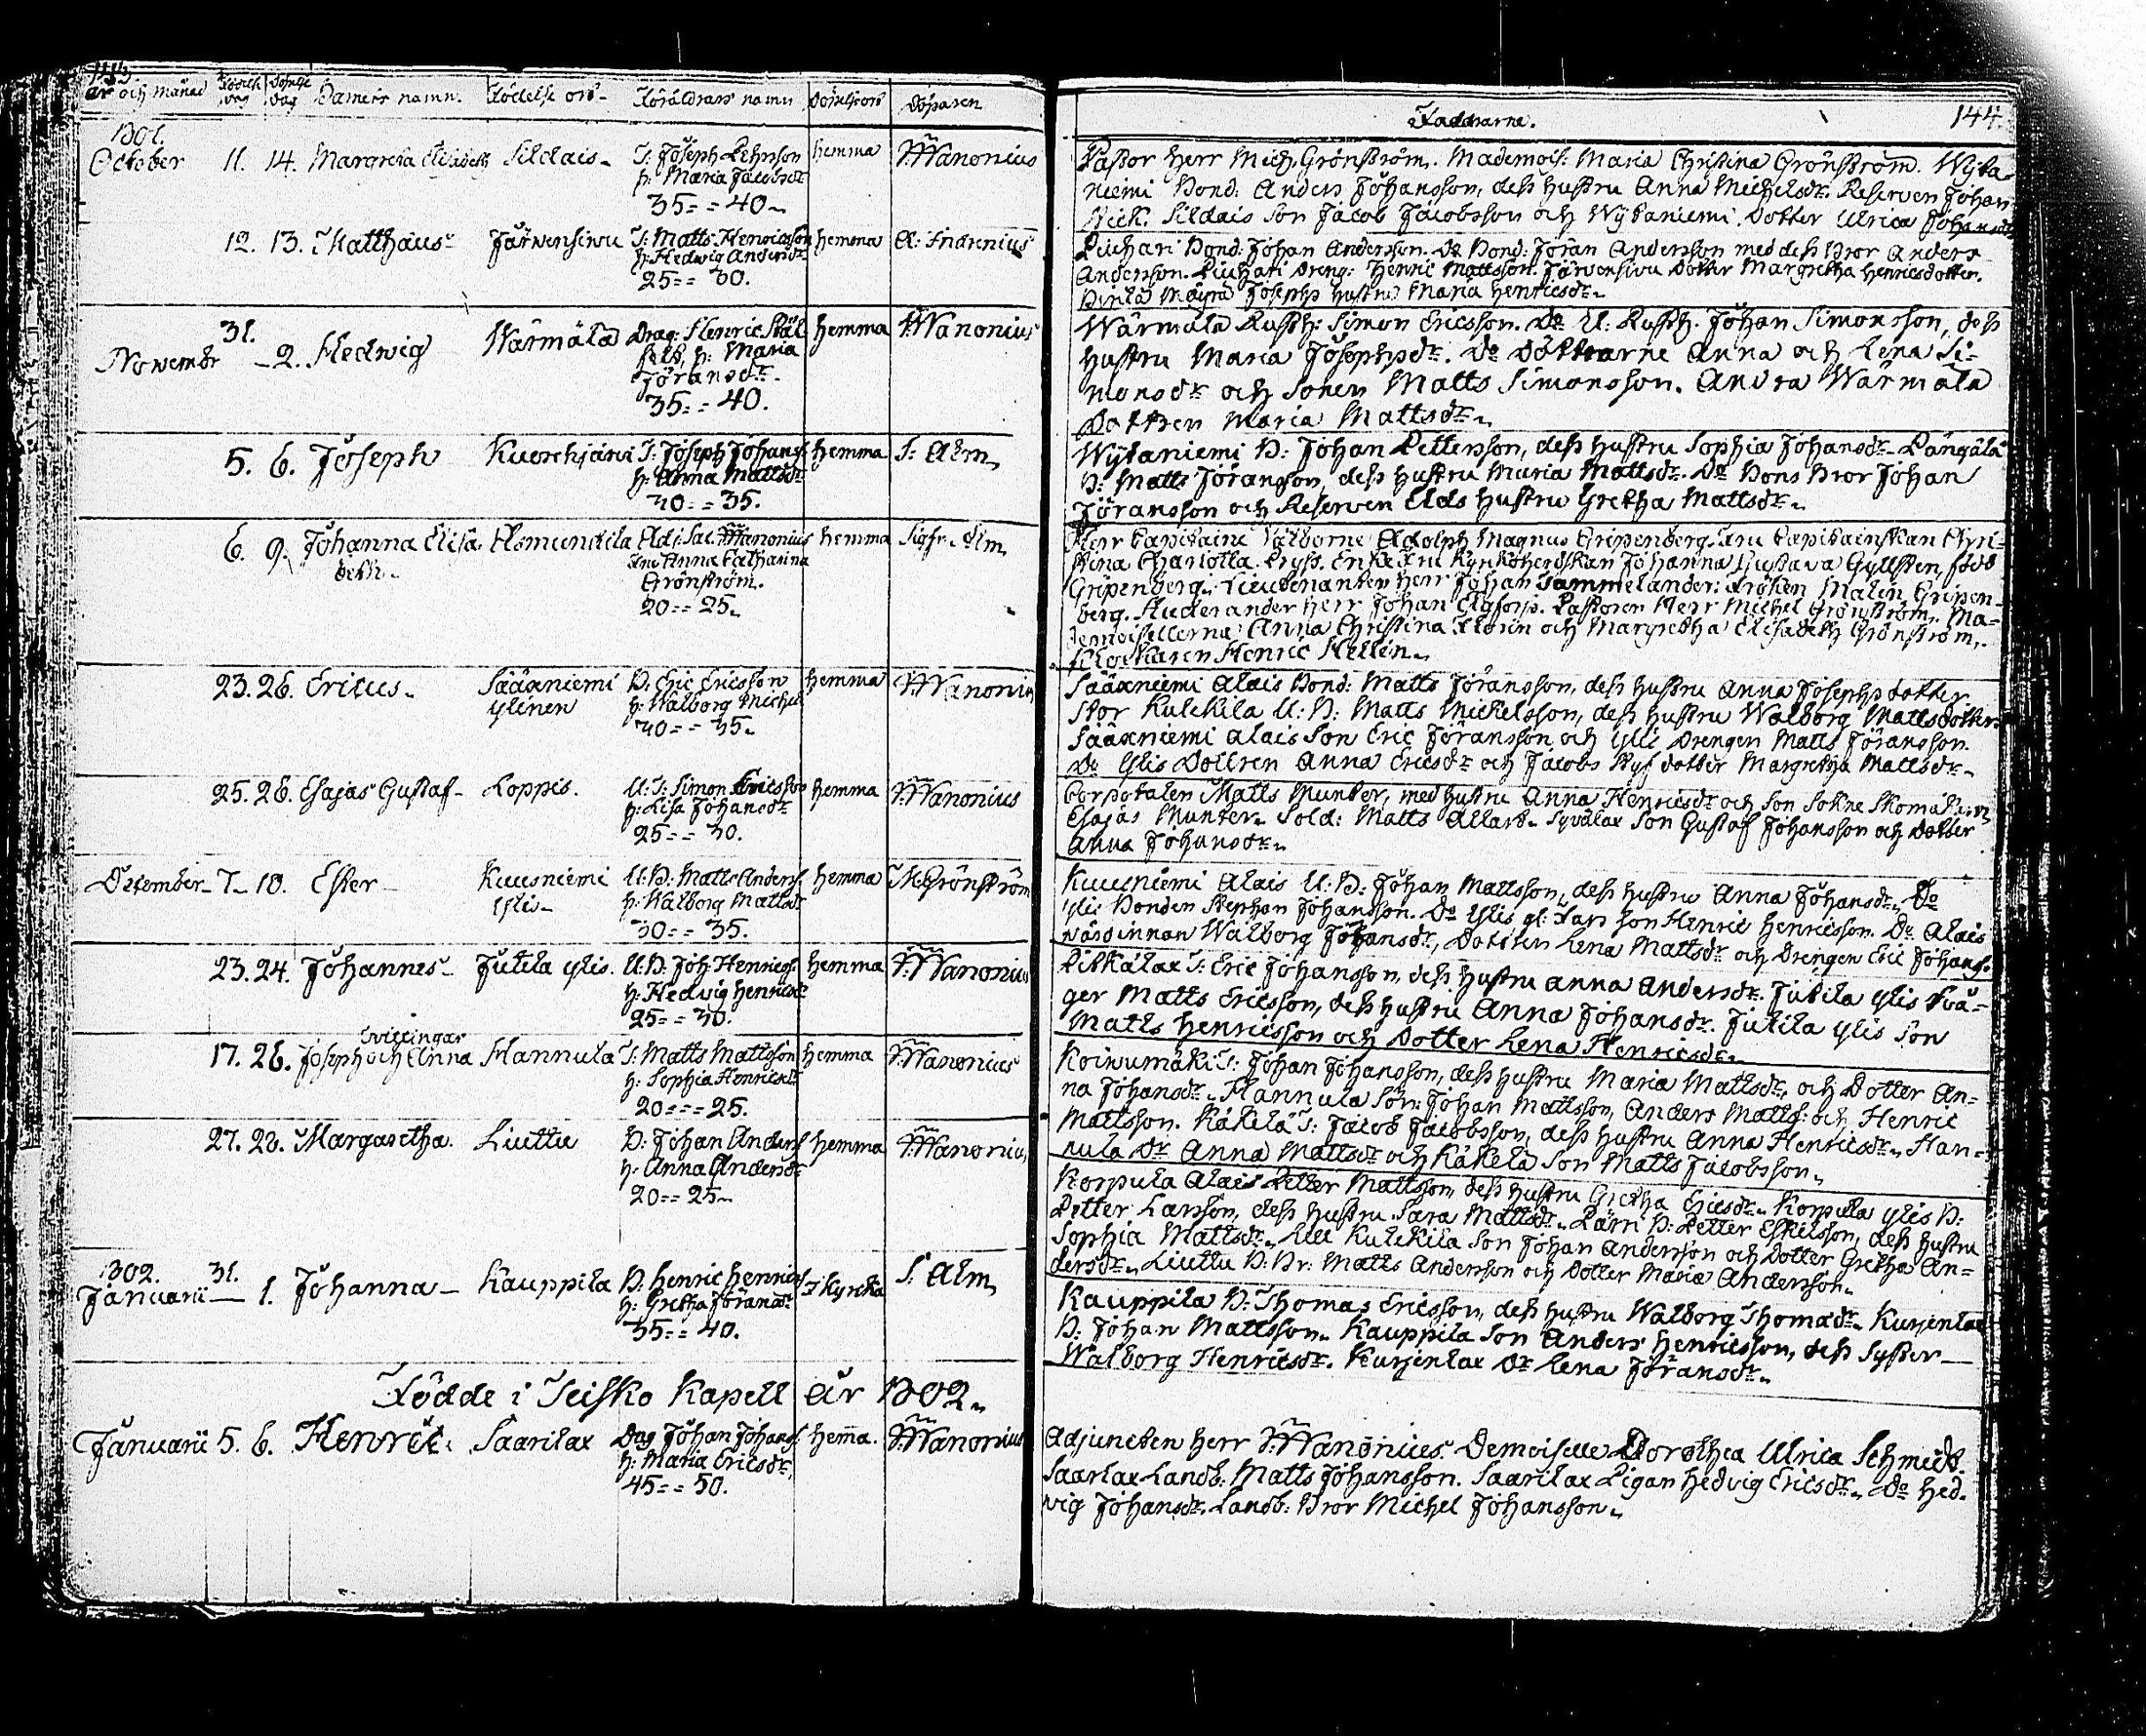 år och månad Dag Barnets namn. Födelse ort Föräldrars namn Döparen
1801.
October 11. 14. Margreta Elisabeth Sildais T: Joseph Johnson hemma Wanonius
h: Maria Jacobsdr
35 = = 40
12. 13. Matthæus Järwensiwu T: Matts Henricsson hemma A: Indrenius
h: Hedwig Andersdr
25 = = 30.
31.
Novembr - 2. Hedwig Wärmälä Drag: Henric Stål hemma Wanonius
h: Maria
Jöransdr.
35 = = 40.
5. 6. Joseph Kuorehjärvi T: Joseph Johanss. hemma S: Alm
h: Anna Mattsdr
30 = = 35.
6. 9. Johanna Elisa Asmundila Adj: Wanonius hemma Sigfr. Alm
beth Fru Anna Catharina
Grönström.
20 = = 25.
23. 26. Ericus Sääxniemi B: Eric Ericsson hemma Wanonius
ylinen h: Walborg Michelsdr
30 = = 35
25. 26. Esajas Gustaf Loppis. U: S: Simon Ericsson hemma Wanonius
h: Lisa Johansdr
25 = = 30.
December 7 10. Ester Kuusniemi U: B: Matts Anderss. hemma M: Grönström
Ylis h: Walborg Mattsdr
30 = = 35.
23. 24. Johannes Jutila ylis. U: B: Joh: Henricss. hemma Wanonius
h: Hedvig Henricsdr
25 = = 30.
Tvillingar
17. 26. Joseph och Anna Hannula T: Matts Mattsson hemma Wanonius
h: Sophia Henricsdr
20 = = 25.
27. 28. Margaretha Liuttu B: Johan Anderss. hemma Wanonius
h: Anna Andersdr
20 = = 25
1802. 31.
Januarii 1. Johanna Kauppila B: Henric Henricss. I Kyrcka S: Alm
h: Gretha Jöransdr
35 = = 40.
Födde i Teisko Kapell år 1802.
Januarii 5. 6. Henric Saarilax Dag Johan Johanss. hemma. Wanonius
h: Maria Ericsdr.
45 = = 50.
Faddrarne. 144
Pastor Herr Mich: Grönström. Mademois: Maria Christina Grönström. Wyta
niemi Bond: Anders Johansson, dess hustru Anna Michelsdr. Reserven Johan
Sildais Son Jacob Jacobsson och Wytaniemi Dotter Ulrica Johansdr
Bond: Johan Andersson. Do Bond: Jöran Andersson med dess Bror Anders
Andersson. Dreng: Henric Mattsson. Järvensivu Dotter Margretha Henricsdotter.
Josephs hustru Maria Henricsdr
Wärmälä Rusth: Simon Ericsson. Do U: Rusth. Johan Simonsson, dess
hustru Maria Josephsdr. Do Döttrarne Anna och Lena Si=
monsdr och Sonen Matts Simonsson. Andra Wärmälä
Dottren Maria Mattsdr
Wytaniemi B: Johan Pettersson, dess hustru Sophia Johansdr
B: Matts Jöransson, dess hustru Maria Mattsdr. Do Bond Bror Johan
Jöransson och Reserven Elds hustru Gretha Mattsdr
Herr Capitaine Välborne Adolph Magnus Gripenberg. Fru Capitainskan Chri=
stina Charlotta Enke Fru Kyrkoherdskan Johanna Gustava Gyllsten, född
Gripenberg. Lieutenanten Herr Johan Tammelander: Fröken Malin Gripen=
berg. Studerander Herr Johan Pastoren Herr Michel Grönström. Ma=
demoisellerna Anna Christina Florin och Margretha Elisabeth Grönström,
Klockaren Henric Hellén
Sääxniemi Alais Bond: Matts Jöransson, dess hustru Anna Josephsdotter
Stor Kulckila U: B: Matts Michelsson, dess hustru Walborg Mattsdotter.
Sääxniemi Alais Son Eric Jöransson och ylis Drengen Matts Jöransson.
Do Ylis Dottren Anna Ericsdr och Jacobs Styf dotter Margretha Mattsdr
Corporalen Matts Munter, med hustru Anna Henricsdr och Son Sokne Skomakaren
Esajas Munter. Sold: Matts Allart. Syvälax Son Gustaf Johansson och Dotter
Anna Johansdr
Kuusniemi Alais U: B: Johan Mattsson, dess hustru Anna Johansdr. Do
Ylis Bonden Stephan Johansson. Do Ylis gl: Fars Son Henric Henricsson. Do Alais
värdinnan Walborg Johansdr, Dottren Lena Mattsdr och Drengen Eric Johanss.
T: Eric Johansson, dess hustru Anna Andersdr. Jutila ylis Svå=
ger Matts Ericsson, dess hustru Anna Johansdr. Jutila ylis Son
Matts Henricsson och Dotter Lena Henricsdr
Koiwumäki T: Johan Johansson, dess hustru Maria Mattsdr, och Dotter An=
na Johansdr. Hannula Sön: Johan Mattsson, Anders Matts: och Henric
Mattsson. Käkelä T: Jacob Jacobsson, dess hustru Anna Henricsdr. Han=
nula Dr Anna Mattsdr och Käkelä Son Matts Jacobsson
Korpula Alais Petter Mattsson, dess hustru Gretha Ericsdr. Korpula ylis B:
Petter Larsson, dess hustru Sara Mattsdr. Pärri B: Petter Eskelsson, dess hustru
Sophia Mattsdr. Lill Kulckila Son Johan Andersson och Dotter Gretha An=
dersdr. Liuttu B: Br: Matts Andersson och Dotter Maria Andersson
Kauppila B: Thomas Ericsson, dess hustru Walborg Thomædr. Kurjenlax
B: Johan Mattsson. Kauppila Son Anders Henricsson, dess Syster
Walborg Henricsdr. Kurjenlax Dr Lena Jöransdr
Adjuncten Herr Wanonius. Demoiselle Dorothea Ulrica Schmidt.
Saarlax Landb: Matts Johansson. Saarilax Pigan Hedvig Ericsdr. Do Hed=
vig Johansdr. Landb: Bror Michel Johansson